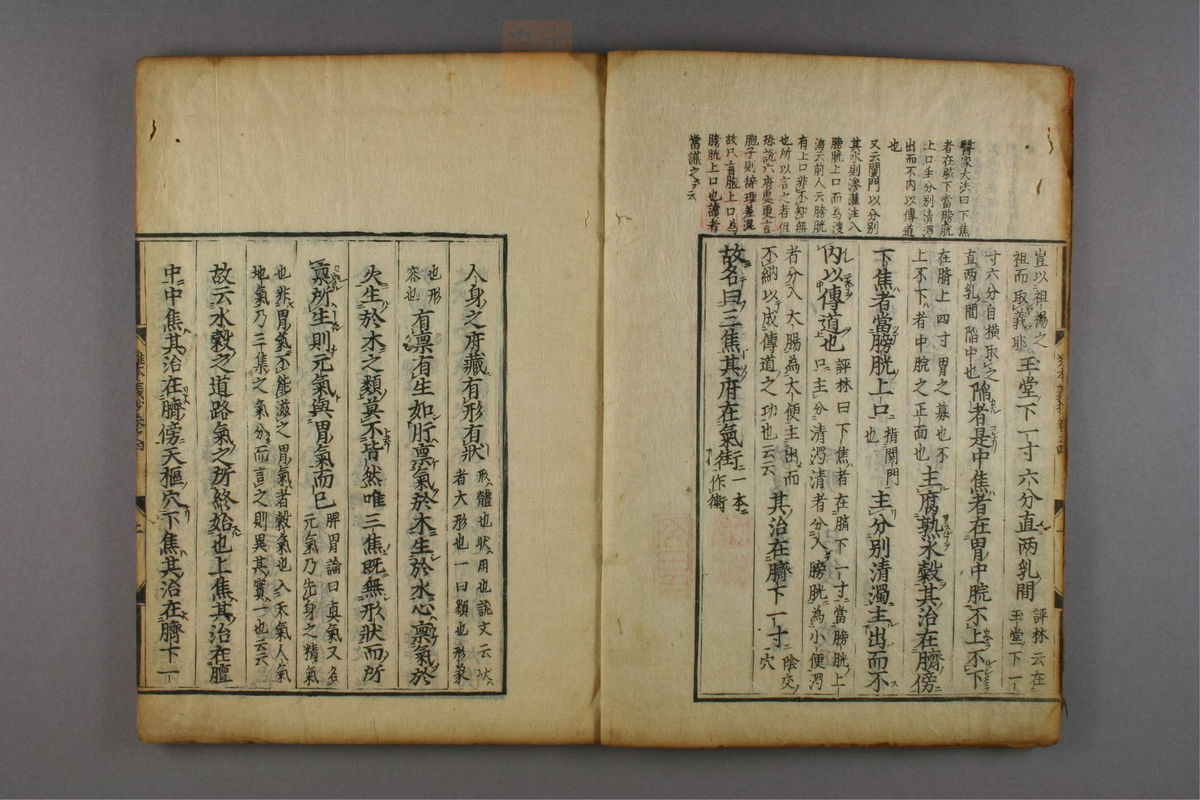 醫家大法曰下焦
者在臍下當膀胱
上口主分別清濁
出而不内以傳道
也
又云闌門以分別
其水則滲灌注入
膀胱上口而為溲
海云前人云膀胱
有上口非不知無
也所以言之者但
恐説六府處更言
胞子則辭理差混
故只言胞上口為
膀胱上口也讀者
當識之云云
豈以祖禓之
祖而取義耶
玉堂下一寸六分直两乳間
評林云在
玉堂下一
寸六分自横取之
直两乳間陷中也
陷者是中焦者在胃中脘不上不下
在臍上四寸胃之募也不
上不下者中脘之正面也
主腐熟水穀其治在臍傍
下焦者當膀胱上口
指闌門
也
主分別清濁主出而不
内以傳道也
評林曰下焦者在臍下一寸當膀胱上
口主分清濁清者分入膀胱為小便濁
者分入大腸為大便主出而
不納以成傳道之功也云云
其治在臍下一寸
陰交
穴
故名曰三焦其府在氣街
一本
作衝
人身之府藏有形有狀
形體也狀用也説文云狀
者大形也一曰類也形象
也形
容也
有禀有生如肝禀氣於木生於水心禀氣於
火生於木之類莫不皆然唯三焦既無形狀而所
禀所生則元氣與胃氣而已
脾胃論曰真氣又名
元氣乃先身之精氣
也非胃氣不能滋之胃氣者穀氣也入禾氣人氣
地氣乃三集之氣分而言之則異其實一也云云
故云水穀之道路氣之所終始也上焦其治在膻
中中焦其治在臍傍天樞穴下焦其治在臍下一